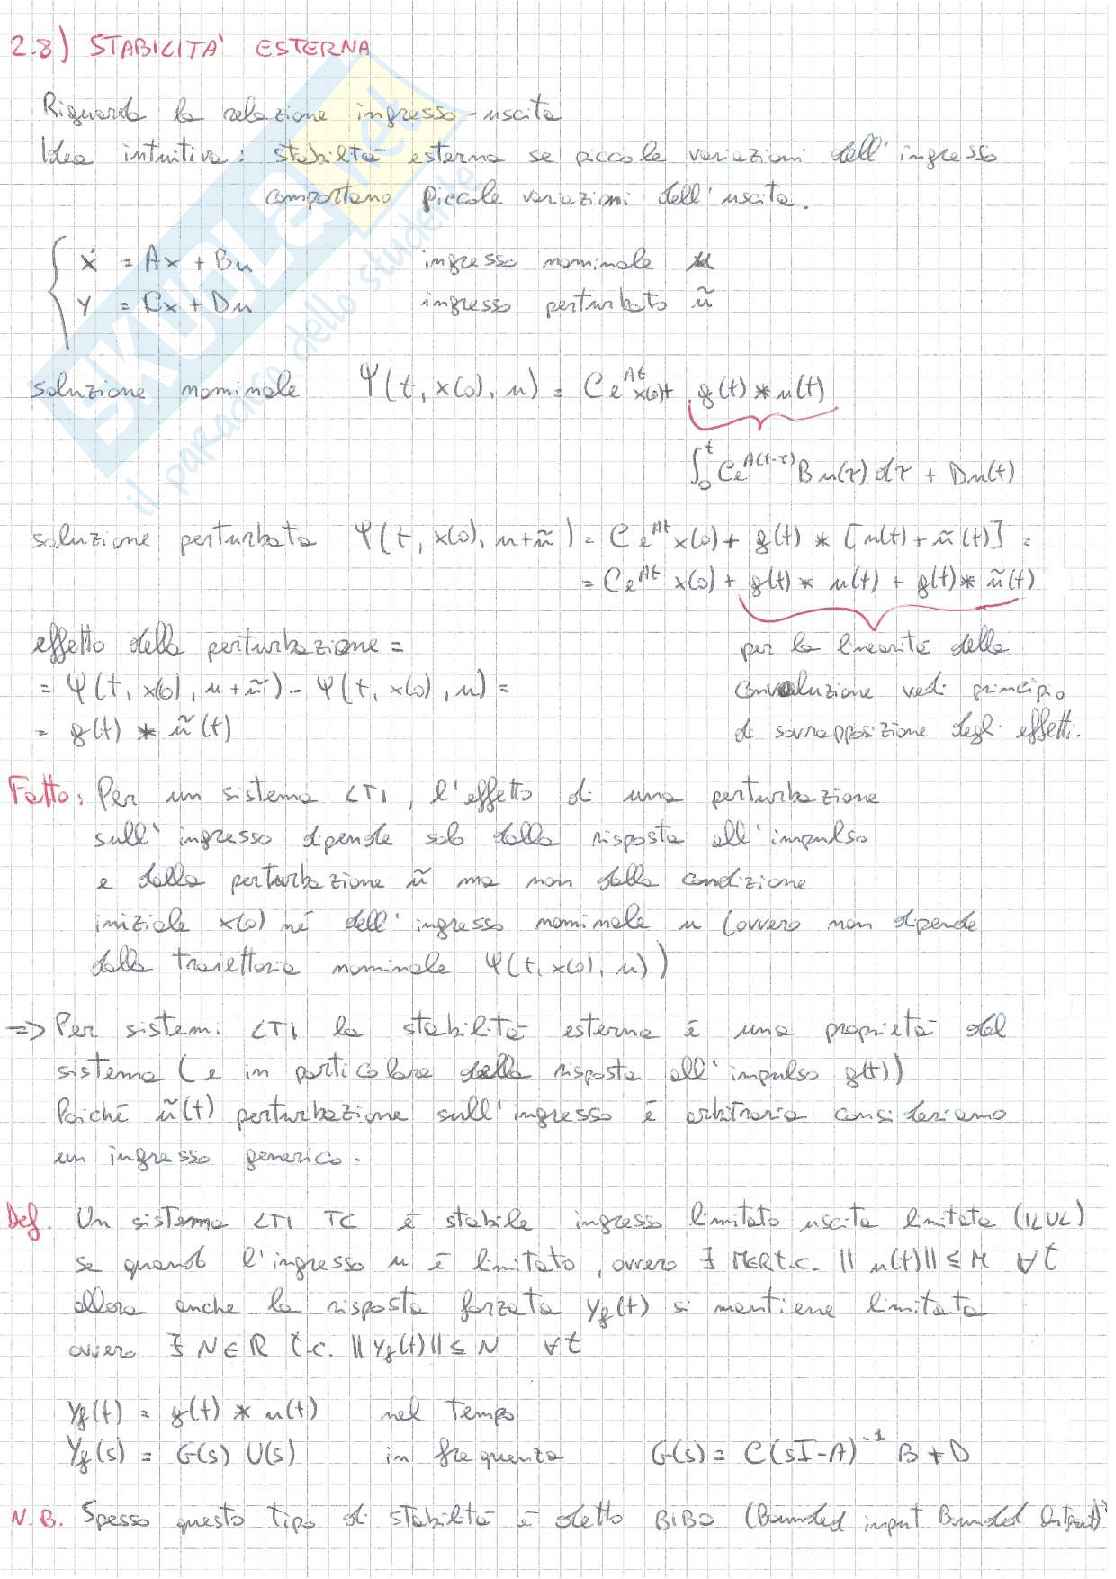 2.8) STABILITA' ESTERNA
Riguarda la relazione ingresso-uscita
Idea intuitiva: stabilità esterna se piccole variazioni dell'ingresso
comportano piccole variazioni dell'uscita.
ẋ = Ax + Bu ingresso nominale u
y = Cx + Du ingresso perturbato ũ
soluzione nominale Ψ(t, x(0), u) = Ce^{At} x(0) + g(t) * u(t)
∫₀ᵗ Ce^{A(t-τ)} B u(τ) dτ + Du(t)
soluzione perturbata Ψ(t, x(0), u+ũ) = Ce^{At} x(0) + g(t) * [u(t) + ũ(t)] =
= Ce^{At} x(0) + g(t) * u(t) + g(t) * ũ(t)
effetto della perturbazione =
= Ψ(t, x(0), u+ũ) - Ψ(t, x(0), u) =
= g(t) * ũ(t)
per la linearità della
convoluzione vedi principio
di sovrapposizione degli effetti.
Fatto: Per un sistema LTI, l'effetto di una perturbazione
sull'ingresso dipende solo dalla risposta all'impulso
e dalla perturbazione ũ ma non dalla condizione
iniziale x(0) né dall'ingresso nominale u (ovvero non dipende
dalla traiettoria nominale Ψ(t, x(0), u))
=> Per sistemi LTI la stabilità esterna è una proprietà del
sistema (e in particolare della risposta all'impulso g(t))
Poiché ũ(t) perturbazione sull'ingresso è arbitraria consideriamo
un ingresso generico.
Def. Un sistema LTI TC è stabile ingresso limitato uscita limitata (ILUL)
se quando l'ingresso u è limitato, ovvero ∃ M∈R t.c. ||u(t)|| ≤ M ∀t
allora anche la risposta forzata y_f(t) si mantiene limitata
ovvero ∃ N∈R t.c. ||y_f(t)|| ≤ N ∀t
y_f(t) = g(t) * u(t) nel tempo
Y_f(s) = G(s) U(s) in frequenza G(s) = C(sI-A)^{-1} B + D
N.B. Spesso questo tipo di stabilità è detto BIBO (Bounded input Bounded Output)
SKUOLA.net
il paradiso dello studente